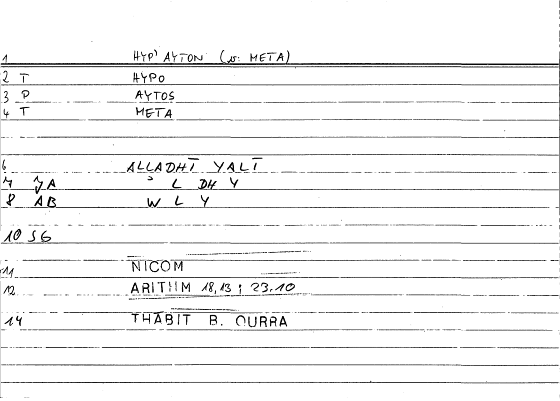 1 HYP' AYTON (v: META)
2 T HYPO
3 P AYTOS
4 T META
6 ALLADHĪ YALĪ
7 JA ' L DH Y
8 AB W L Y
10 SG
11 NICOM
12 ARITHM 18,13 ; 23.10
14 THĀBIT B. QURRA